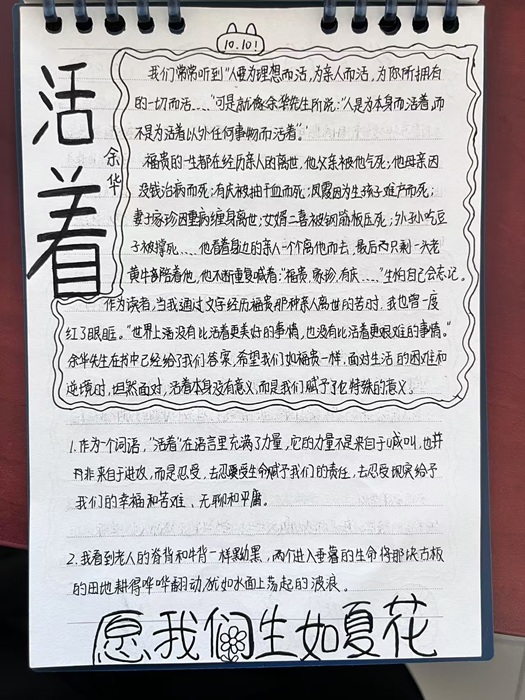 10.10!
活着
余华
我们常常听到“人要为理想而活,为亲人而活,为你所拥有
的一切而活……”可是就像余华先生所说:“人是为本身而活着,而
不是为活着以外任何事物而活着”。
福贵的一生都在经历亲人的离世,他父亲被他气死;他母亲因
没钱治病而死;有庆被抽干血而死;凤霞因为生孩子难产而死;
妻子家珍因重病缠身离世;女婿二喜被钢筋板压死;外孙吃豆
子被撑死……他看着身边的亲人一个个离他而去,最后只剩一头老
黄牛陪着他,他不断重复喊着:“福贵、家珍、有庆……”生怕自己会忘记。
作为读者,当我通过文字经历福贵那种亲人离世的苦时,我也曾一度
红了眼眶。“世界上活没有比活着更美好的事情,也没有比活着更艰难的事情。”
余华先生在书中已经给了我们答案,希望我们如福贵一样,面对生活的困难和
逆境时,坦然面对,活着本身没有意义,而是我们赋予了它特殊的意义。
1.作为一个词语,“活着”在语言里充满了力量,它的力量不是来自于喊叫,也并
非来自于进攻,而是忍受,去忍受生命赋予我们的责任,去忍受现实给予
我们的幸福和苦难、无聊和平庸。
2.我看到老人的脊背和牛背一样黝黑,两个进入垂暮的生命将那块古板
的田地耕得哗哗翻动,犹如水面上荡起的波浪。
愿我们生如夏花